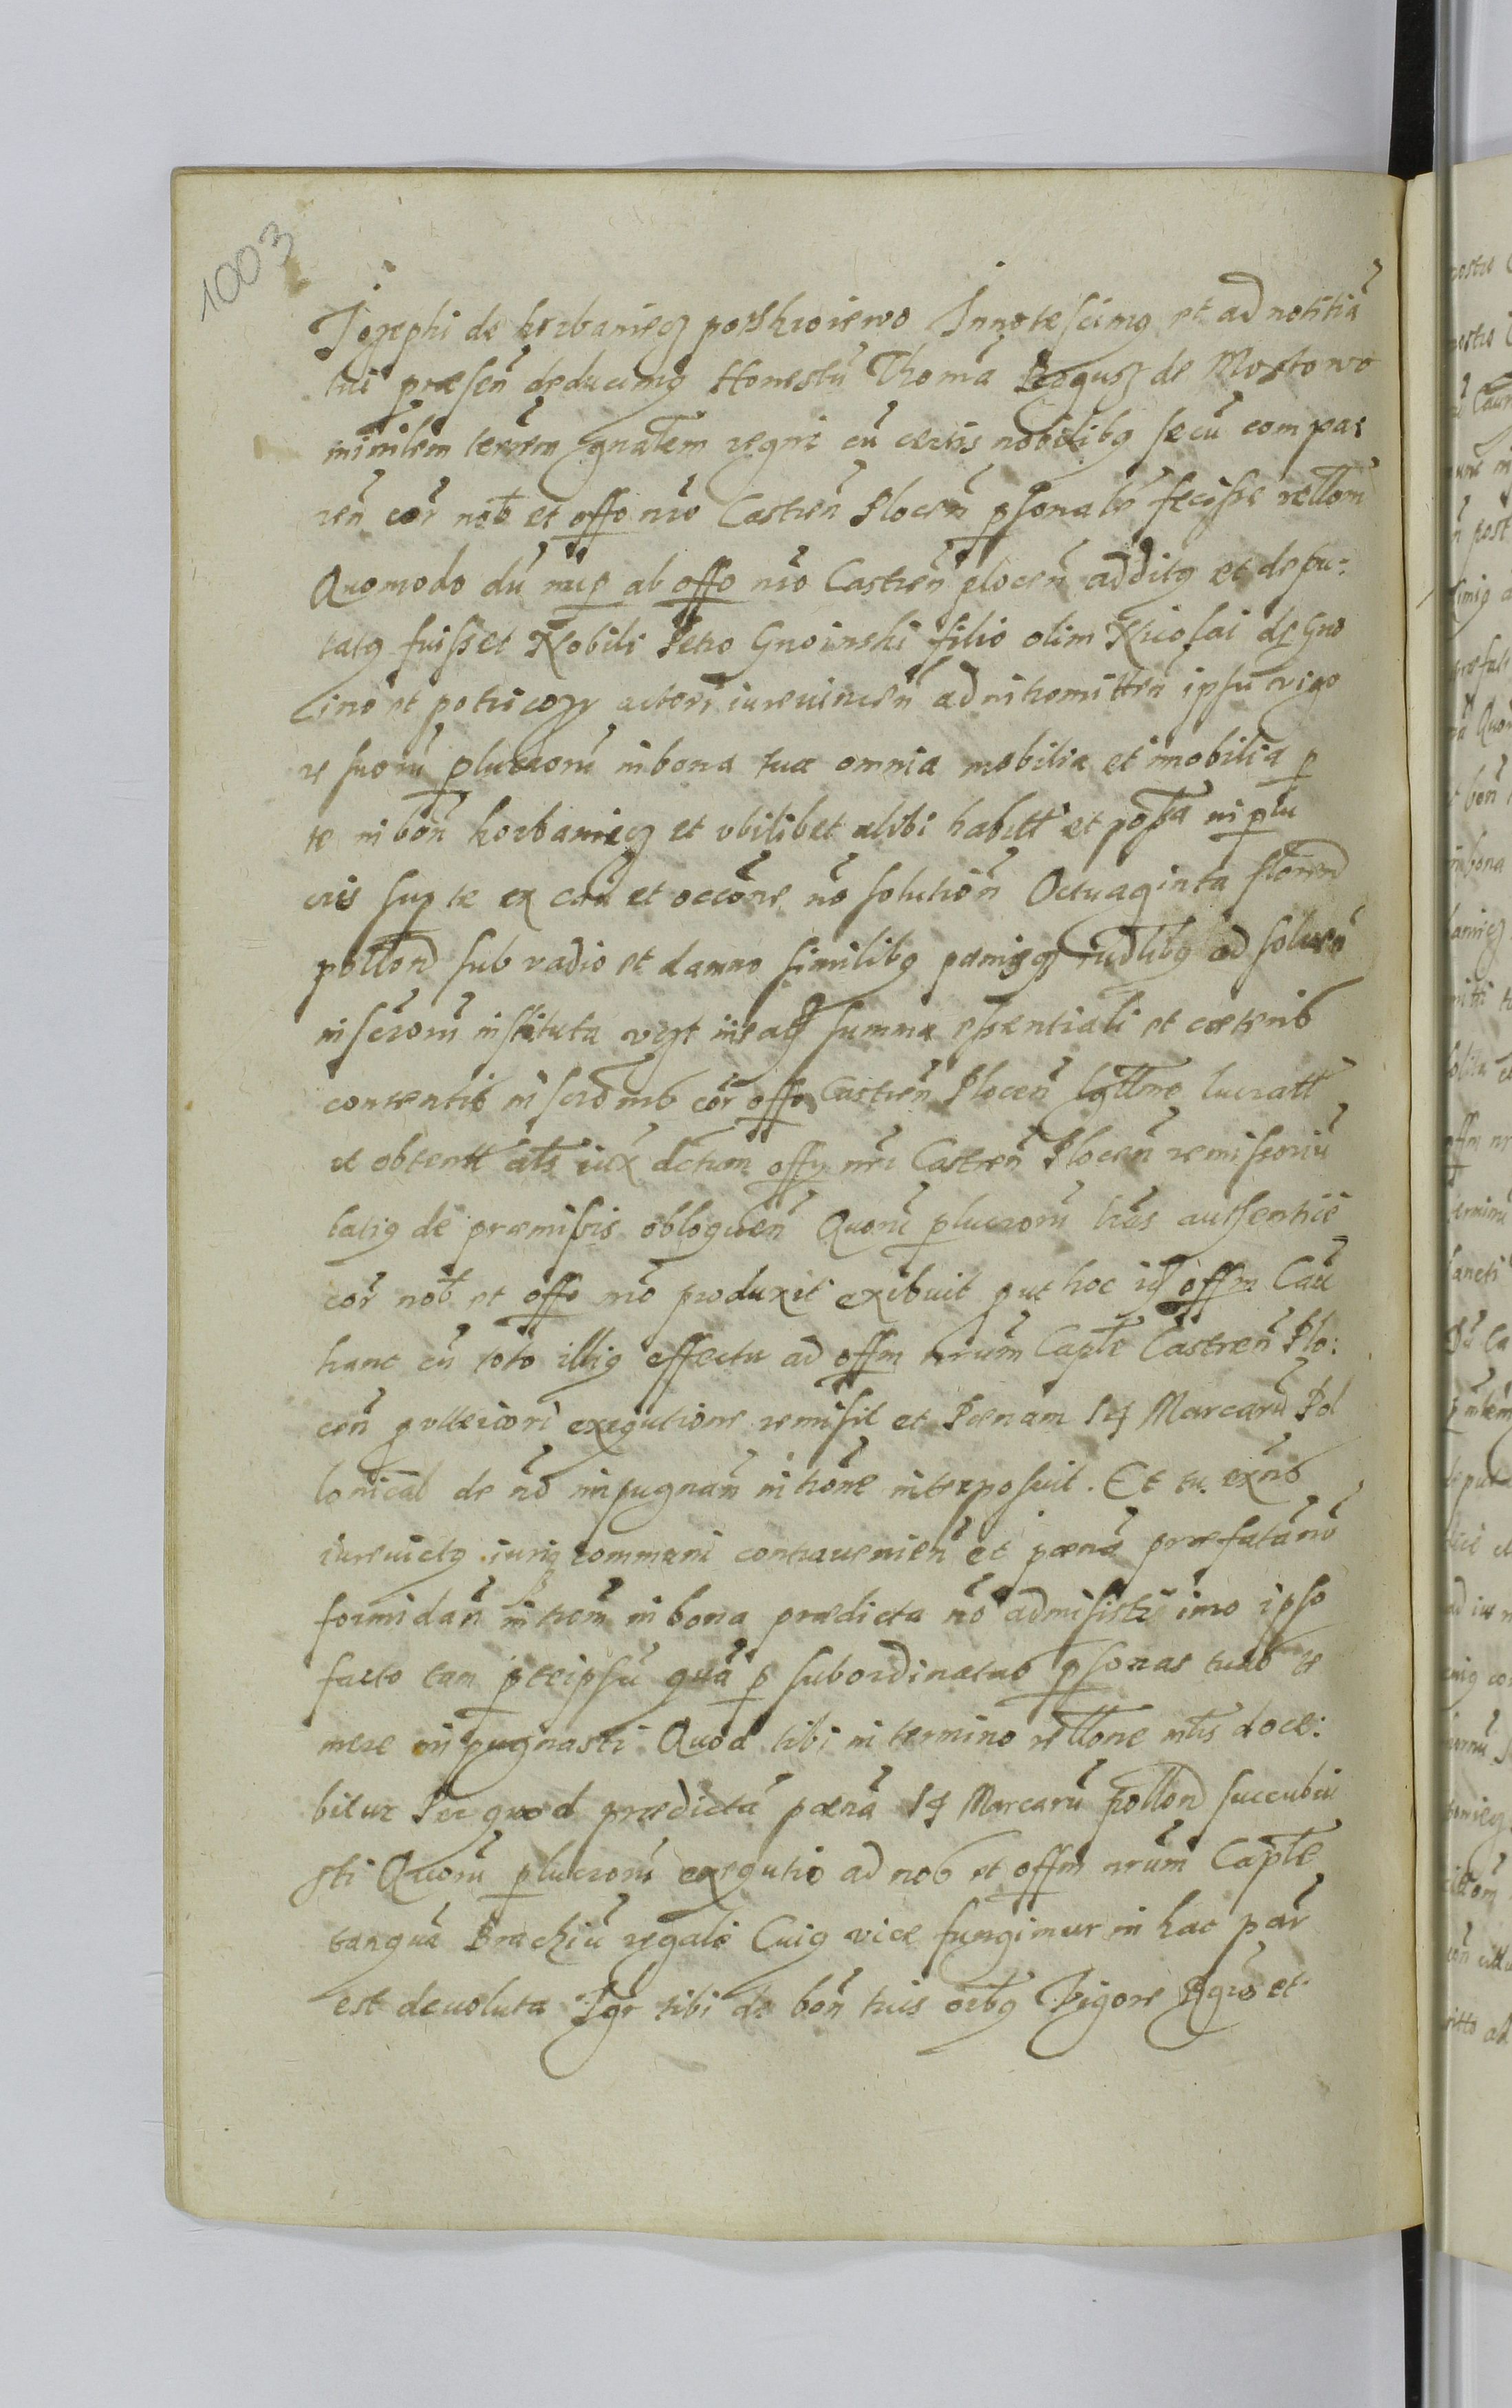 1003
Jozephi de korbaniecz poszkroiewo Innotescimq et ad notitiã
tui præsen̄ deducimq Honestũ Thomã Bogusz de Mostowo
minīlem terrēm gnālem regni cũ certis nobilibq secũ compar
ren̄ cor̄ nob et offo nr̄o Castren̄ Plocen̄ psonalr̄ fecisse rellōm
Quomodo dũ nup ab offo nr̄o Castren̄ plocen̄ additq et depu:
tatq fuisset Nobili Petro Gnoinski filio olim Nicolai de Gno
ino et potricozy actori iurevincen̄ ad intromitten̄ ipsũ vigo
re suorũ pluciorũ in bona tua omnia mobilia et imobilia p
te in bon̄ korbaniecz et vbilibet alibi habitt et possa in plu
cris sup te ex caũ et occōne nō solution̄ Octuaginta floren
pollon sub vadio et damno similibq pænisqz iudlibq ad solven̄
in scrorũ instituta vezt ineaqz summa essentiali et cæterib
contentib in scro nib cor̄ offo Castren̄ Plocen̄ lgttme lucratt
et obtentt ats iux dctum offy nr̄i Castren̄ Plocen̄ remissoriũ
latiq de præmissis obloquen̄ Quorũ plucrorũ lras autsentice
cor̄ nob et offo nr̄o produxit exibuit put hoc idz offm Caũ
hanc cũ toto illiq effectu ad offm nrũm Captle Castren̄ Plo:
cen̄ pvltericori exequtione remisit et Pænam 14 Marcarũ Pol
lonical de nō impugnan̄ intrōne interposuit. Et tu exn̄s
iurevictq iuriq communi contravenien̄ et pænã præfatã nō
formidan̄ intrōm in bona prædicta nō admisisti imo ipso
facto tam pteipsũ quã p subordinatas psonas tuas te
mere inpugnasti Quod tibi in termino rellone mltis doce:
bitur Per quod prædictã pænã 14 Marcarũ pollon succubui
sti Quorũ plucrorũ exequtio ad nob et offm nrũm Captle
tanquã Brachiũ regale Cuiq vice fungimur in hac par̄
est devoluta Igr tibi de bon̄ tuis oibq Vigore Rgro et